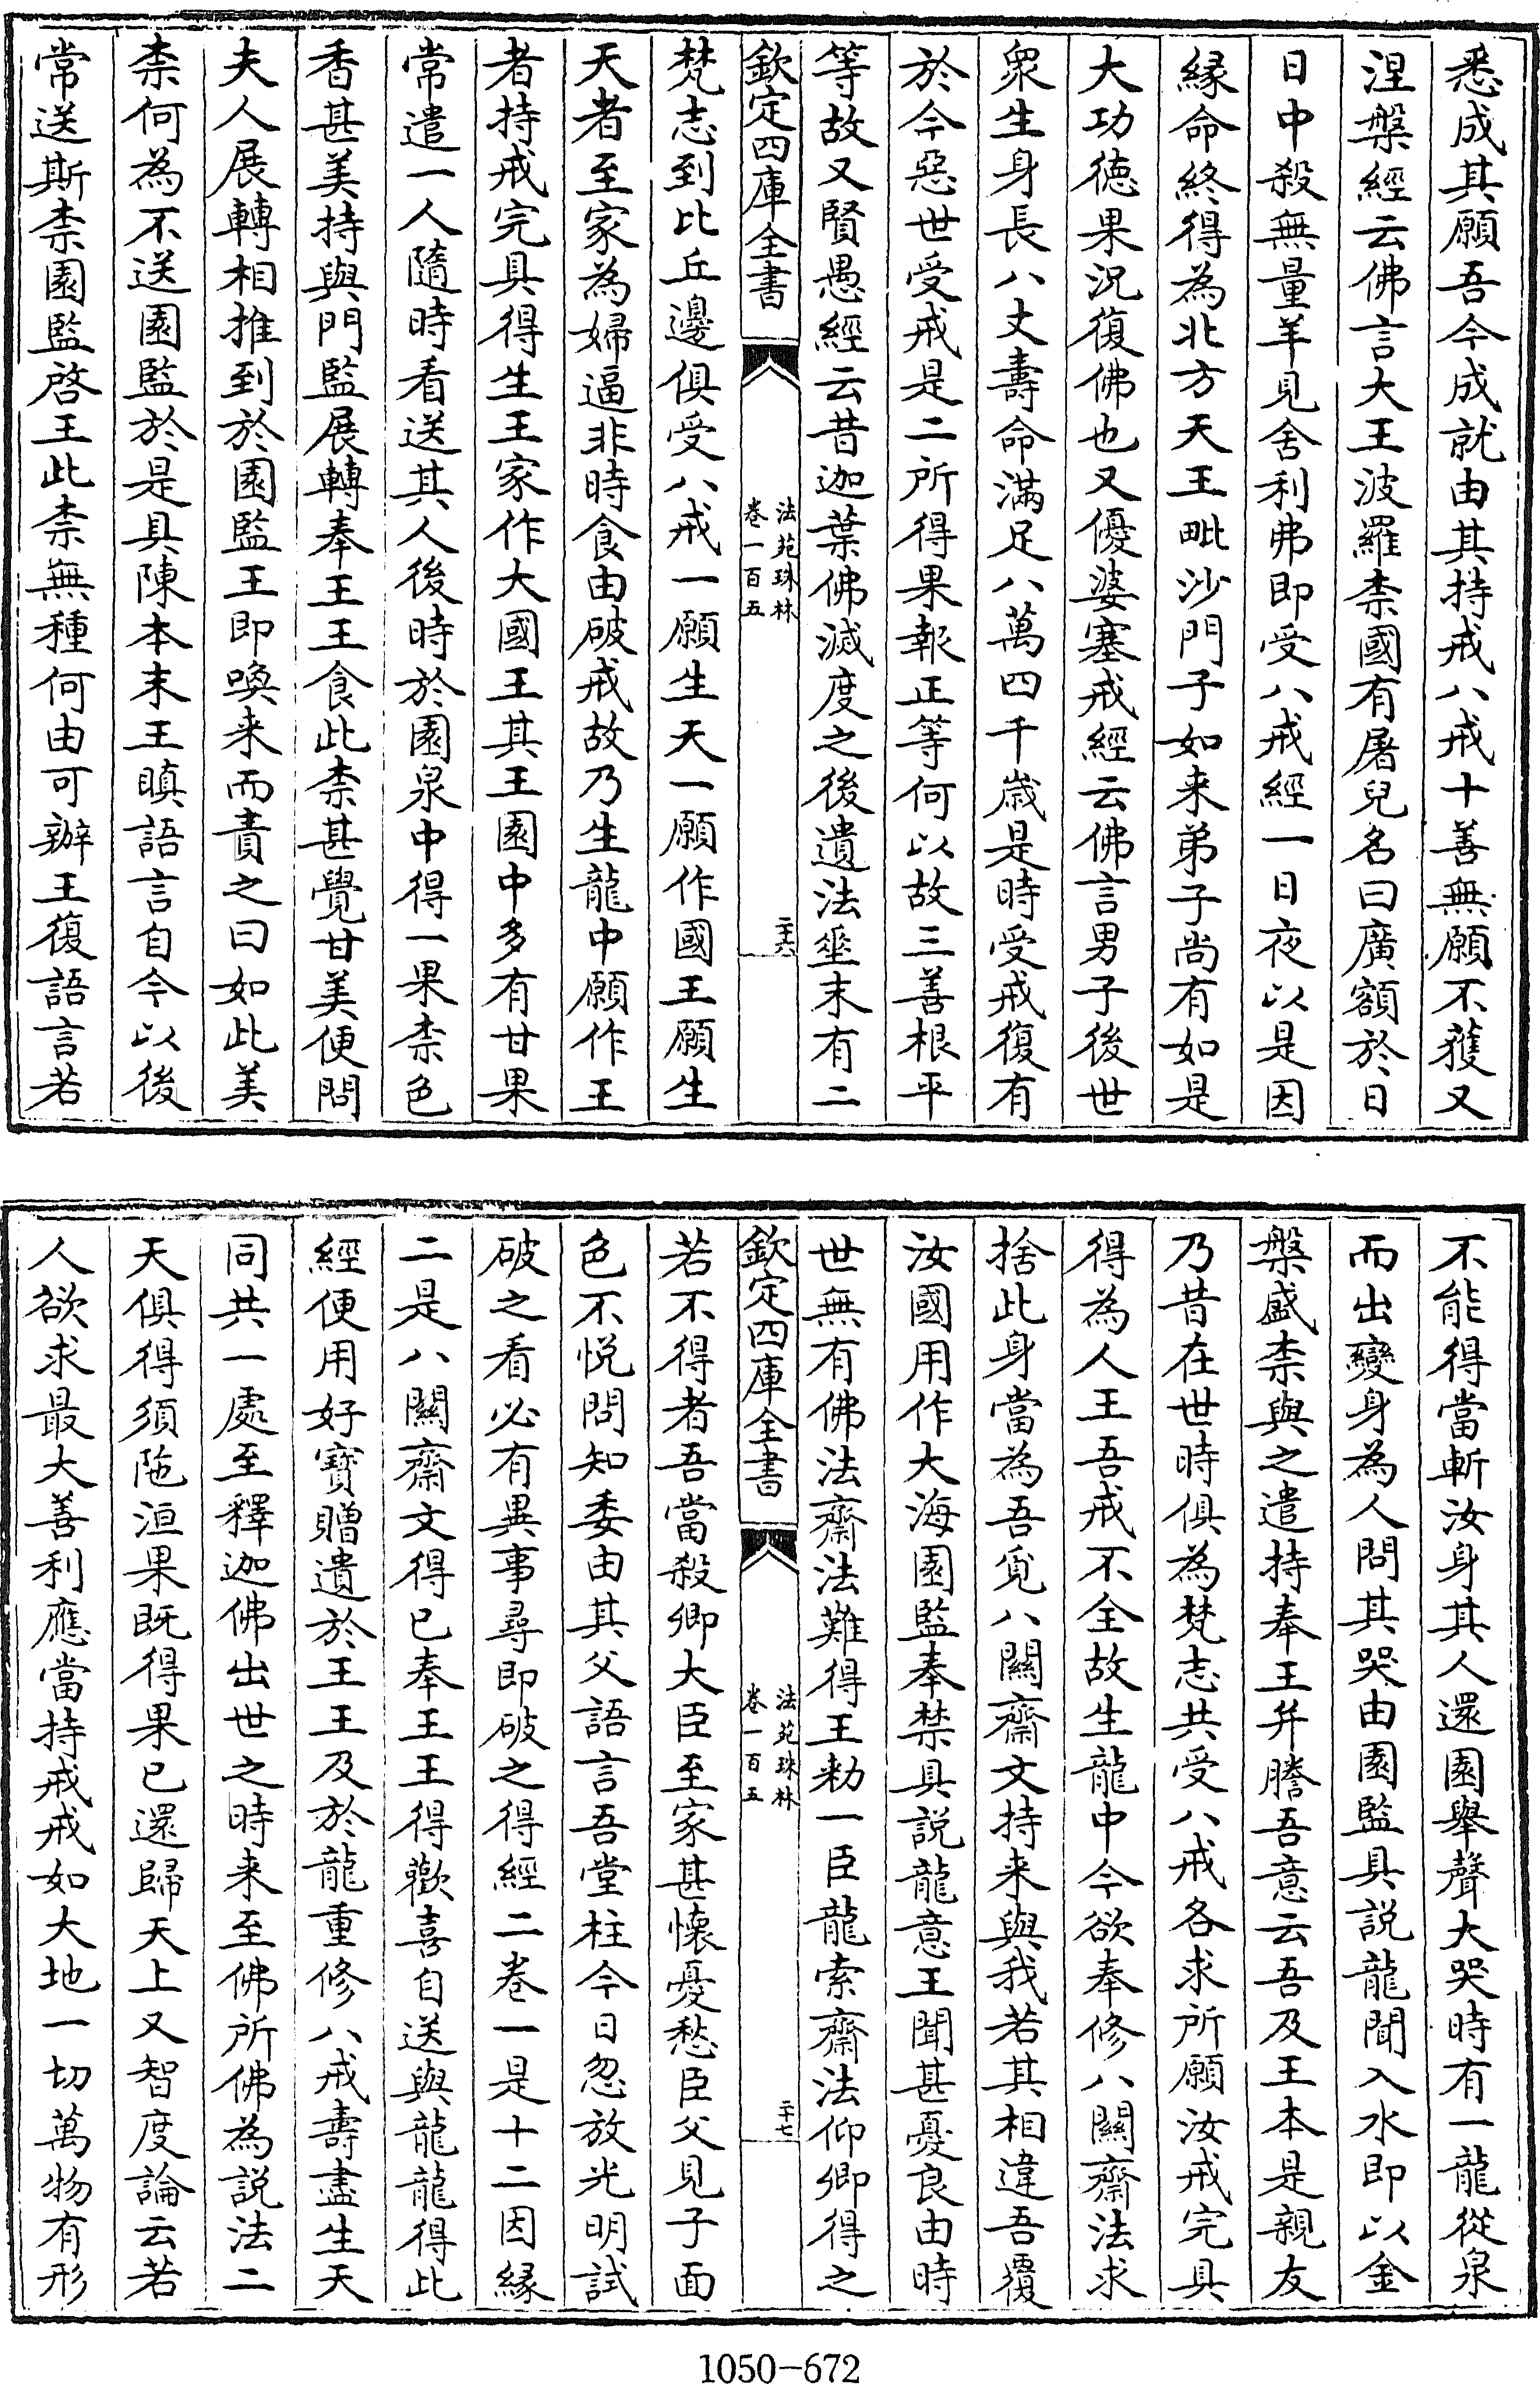 悉成其願吾今成就由其持戒八戒十善無願不獲又
涅槃經云佛言大王波羅柰國有屠兒名曰廣額於日
日中殺無量羊見舍利弗即受八戒經一日夜以是因
緣命終得為北方天王毗沙門子如来弟子尚有如是
大功德果況復佛也又優婆塞戒經云佛言男子後世
衆生身長八丈壽命滿足八萬四千歳是時受戒復有
於今惡世受戒是二所得果報正等何以故三善根平
等故又賢愚經云昔迦葉佛滅度之後遺法垂末有二
欽定四庫全書
法苑珠林
卷一百五
二十六
梵志到比丘邊俱受八戒一願生天一願作國王願生
天者至家為婦逼非時食由破戒故乃生龍中願作王
者持戒完具得生王家作大國王其王園中多有甘果
常遣一人隨時看送其人後時於園泉中得一果柰色
香甚美持與門監展轉奉王王食此柰甚覺甘美便問
夫人展轉相推到於園監王即喚来而責之曰如此美
柰何為不送園監於是具陳本末王瞋語言自今以後
常送斯柰園監啓王此柰無種何由可辦王復語言若
不能得當斬汝身其人還園舉聲大哭時有一龍從泉
而出變身為人問其哭由園監具説龍聞入水即以金
槃盛柰與之遣持奉王并謄吾意云吾及王本是親友
乃昔在世時俱為梵志共受八戒各求所願汝戒完具
得為人王吾戒不全故生龍中今欲奉修八關齋法求
捨此身當為吾覓八關齋文持来與我若其相違吾覆
汝國用作大海園監奉柰具説龍意王聞甚憂良由時
世無有佛法齋法難得王勅一臣龍索齋法仰卿得之
欽定四庫全書
法苑珠林
卷一百五
二十七
若不得者吾當殺卿大臣至家甚懐憂愁臣父見子面
色不悦問知委由其父語言吾堂柱今日忽放光明試
破之看必有異事尋即破之得經二卷一是十二因緣
二是八關齋文得已奉王王得歡喜自送與龍龍得此
經便用好寳贈遺於王王及於龍重修八戒壽盡生天
同共一處至釋迦佛出世之時来至佛所佛為説法二
天俱得須陁洹果既得果已還歸天上又智度論云若
人欲求最大善利應當持戒戒如大地一切萬物有形
1050-672